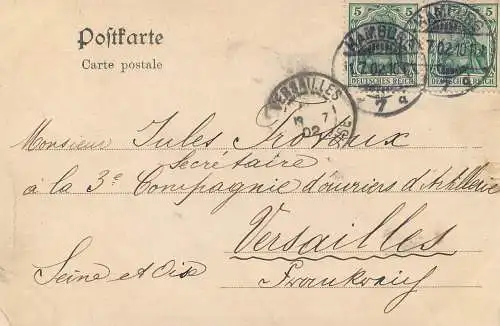 Postkarte
Carte postale
5 5
DEUTSCHES REICH
HAMBURG
7.02.10
7 a
VERSAILLES
7
02
Monsieur Jules
Secrétaire
à la 3e Compagnie d'ouvriers d'Artillerie
Versailles
Seine et Oise
Frankreich